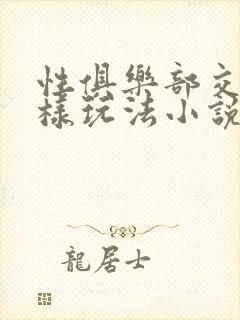 性俱樂部交
樣玩法小說
龍居士